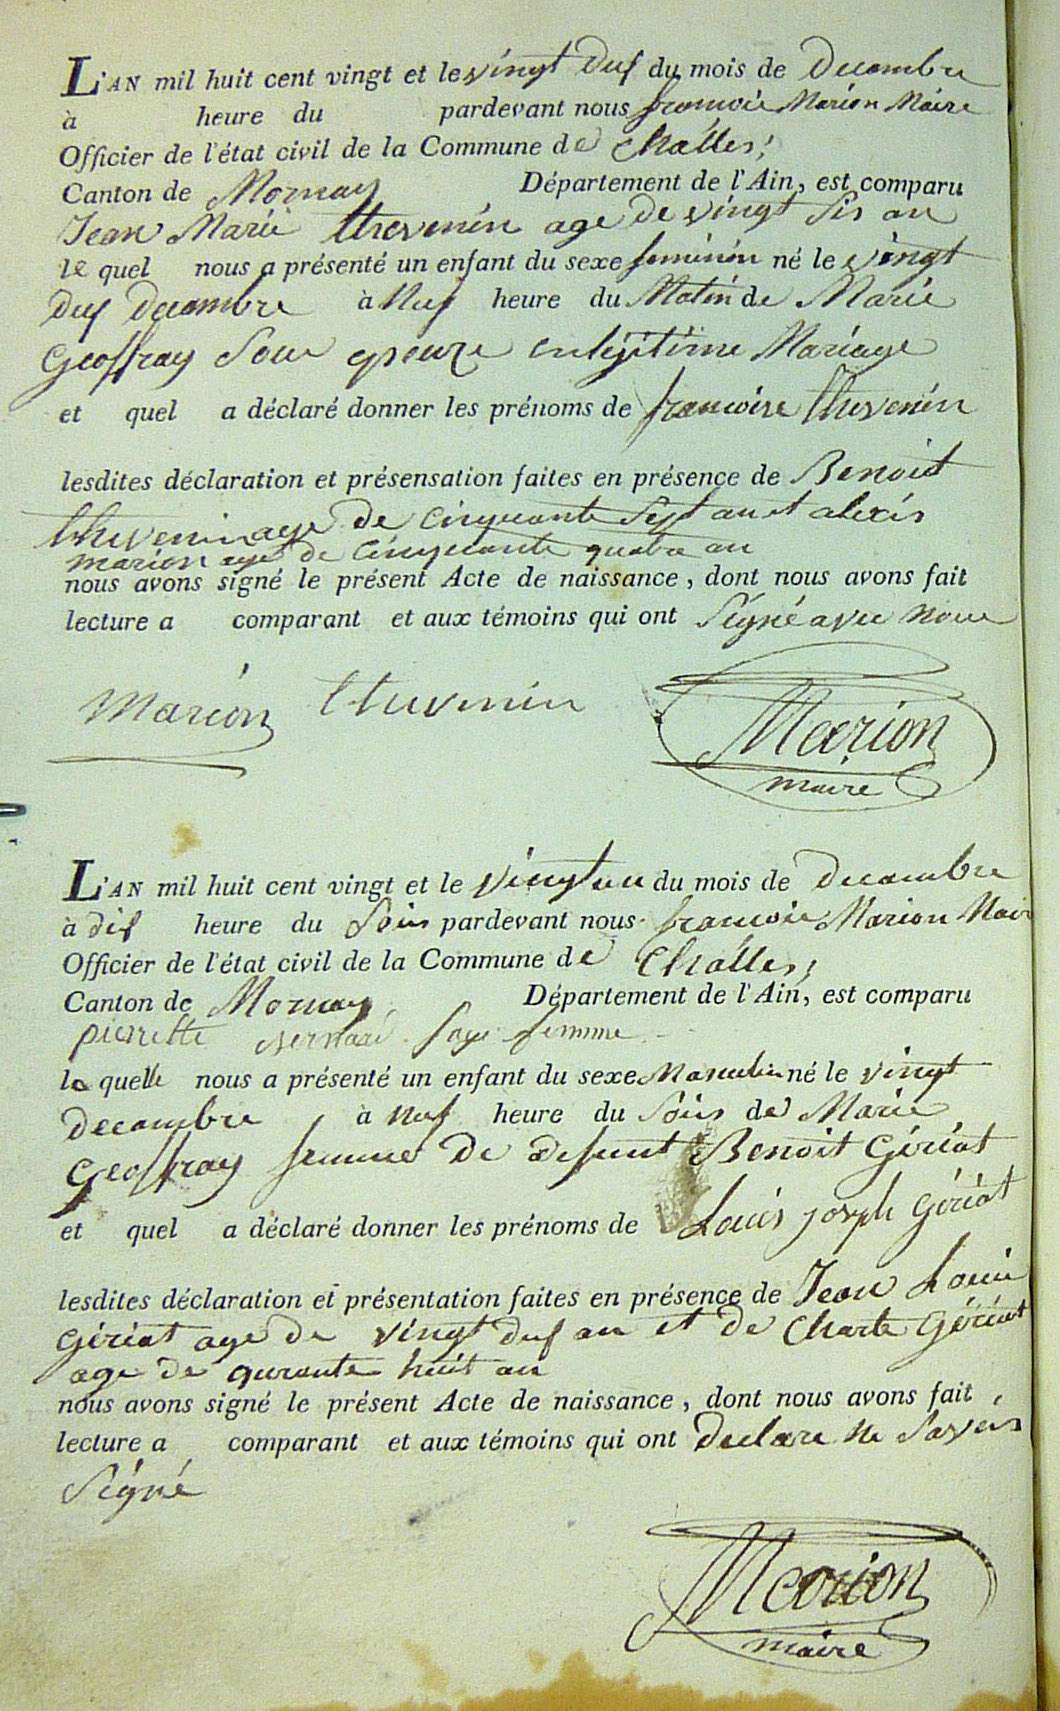 L'AN mil huit cent vingt et le vingt duf du mois de decembre
à heure du pardevant nous francoie Marion Maire
Officier de l'état civil de la Commune de Challes;
Canton de Mornay Département de l'Ain, est comparu
Jean Marie thevenin age de vingt sis an
le quel nous a présenté un enfant du sexe feminin né le vingt
duf decembre à Nuf heure du Matin de Marie
Geoffray Son epouze enlegitime Mariage
et quel a déclaré donner les prénoms de francoise thevenin
lesdites déclaration et présensation faites en présence de Benoit
thevenin age de cinquante Sept an et alexis
marion age de cinquante quatre an
nous avons signé le présent Acte de naissance, dont nous avons fait
lecture a comparant et aux témoins qui ont Signé avec nous
Marion thevenin Marion
maire
L'AN mil huit cent vingt et le vingt un du mois de decembre
à dis heure du Soir pardevant nous francoie Marion Mair
Officier de l'état civil de la Commune de Challes;
Canton de Mornay Département de l'Ain, est comparu
pierrette Sage femme
la quelle nous a présenté un enfant du sexe Masculin né le vingt
decembre à Nuf heure du Soir de Marie
Geoffray femme de defunt Benoit Gériat
et quel a déclaré donner les prénoms de Louis joseph Gériat
lesdites déclaration et présentation faites en présence de Jean Louis
Gériat age de vingt duf an et de Charle Gériat
age de qurante huit an
nous avons signé le présent Acte de naissance, dont nous avons fait
lecture a comparant et aux témoins qui ont declare ne Savoir
Signé
Marion
maire